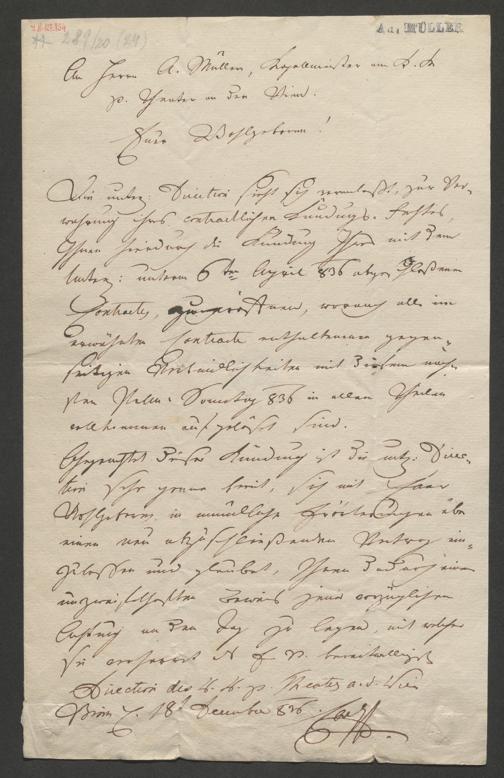 Ad. MÜLLER
An Herrn A. Müller, Kapellmeister am K. K.
p. Theater an der Wien.
Euer Wohlgeboren!
Die unter: Direction sieht sich veranlaßt, zur Ver-
wahrung ihres contractlichen Kündungs-Rechtes,
Ihnen hierdurch die Kündung Ihres mit dem
unterm 6ten April 836 abgeschloßenen
Contractes, wornach alle im
erwähnten Contracte enthaltenen gegen-
seitigen Verbindlichkeiten mit diesem näch-
sten Palm-Sonntag 836 in allen Theilen
vollkommen aufgelöst sind.
Ungeachtet dieser Kündung ist die untz: Direc-
tion sehr gerne bereit, sich mit Euer
Wohlgeboren in mündliche Erörterungen über
einen neu abzuschließenden Vertrag ein-
zulassen und glaubet, Ihnen dadurch einen
unzweifelhaften Beweis jener vorzüglichen
Achtung an den Tag zu legen, mit welcher
sie verharret bereitwilligst
Direction des K. K. p. Theater a. d. Wien
Wien d. 18t December 836. Carl